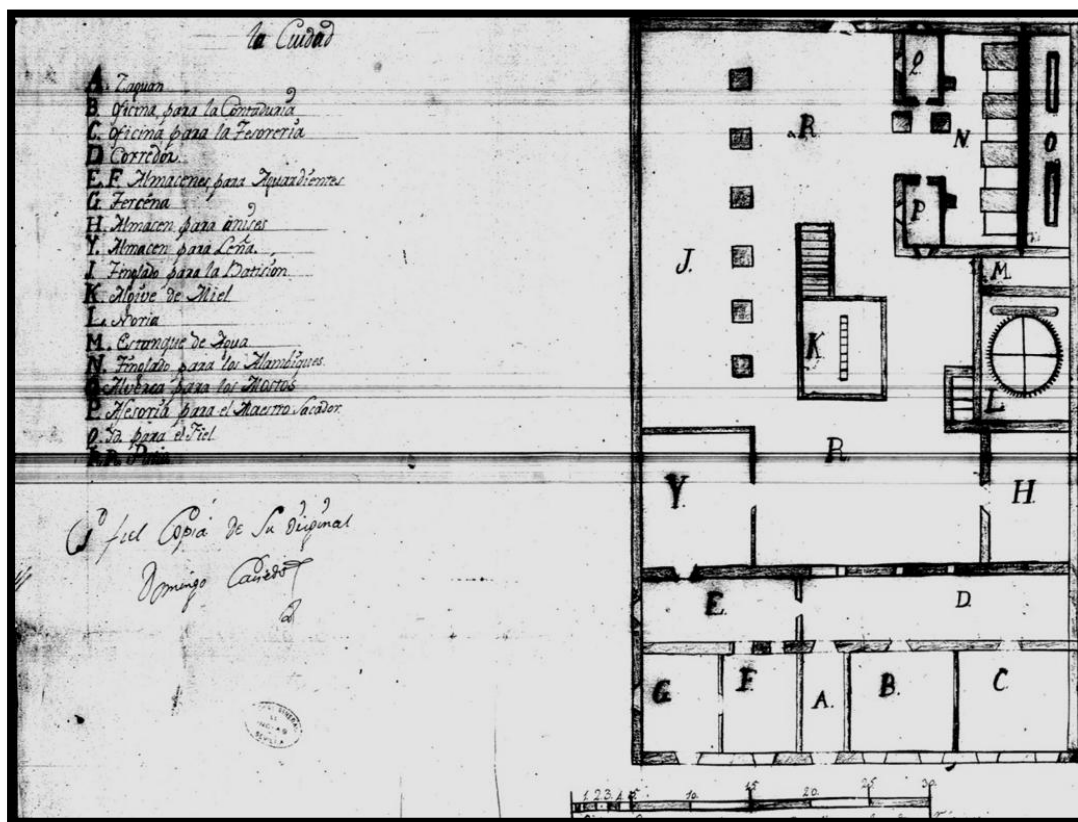 la Ciudad
A. Zaguan
B. Oficina para la Contaduria
C. Oficina para la Tesoreria
D Corredor
E. F. Almacenes para Aguardientes
G Tercena
H. Almacen para anises
Y. Almacen para Leña.
J. Tinglado para la Batision
K. Algive de Miel
L. Noria
M. Estanque de Agua
N. Tinglado para los Alambiques.
O. Alverca para los Mostos
P. Asesoria para el Maestro Sacador
Q. Yd. para el Fiel
R.R. Patio
Es fiel Copia de Su Original
Domingo
Q
R.
N.
O
P
J.
M.
K
L
R.
Y
H.
E.
D.
G
F.
A.
B.
C.
1. 2. 3. 4. 5. 10. 15. 20. 25. 30.
SEVILLA